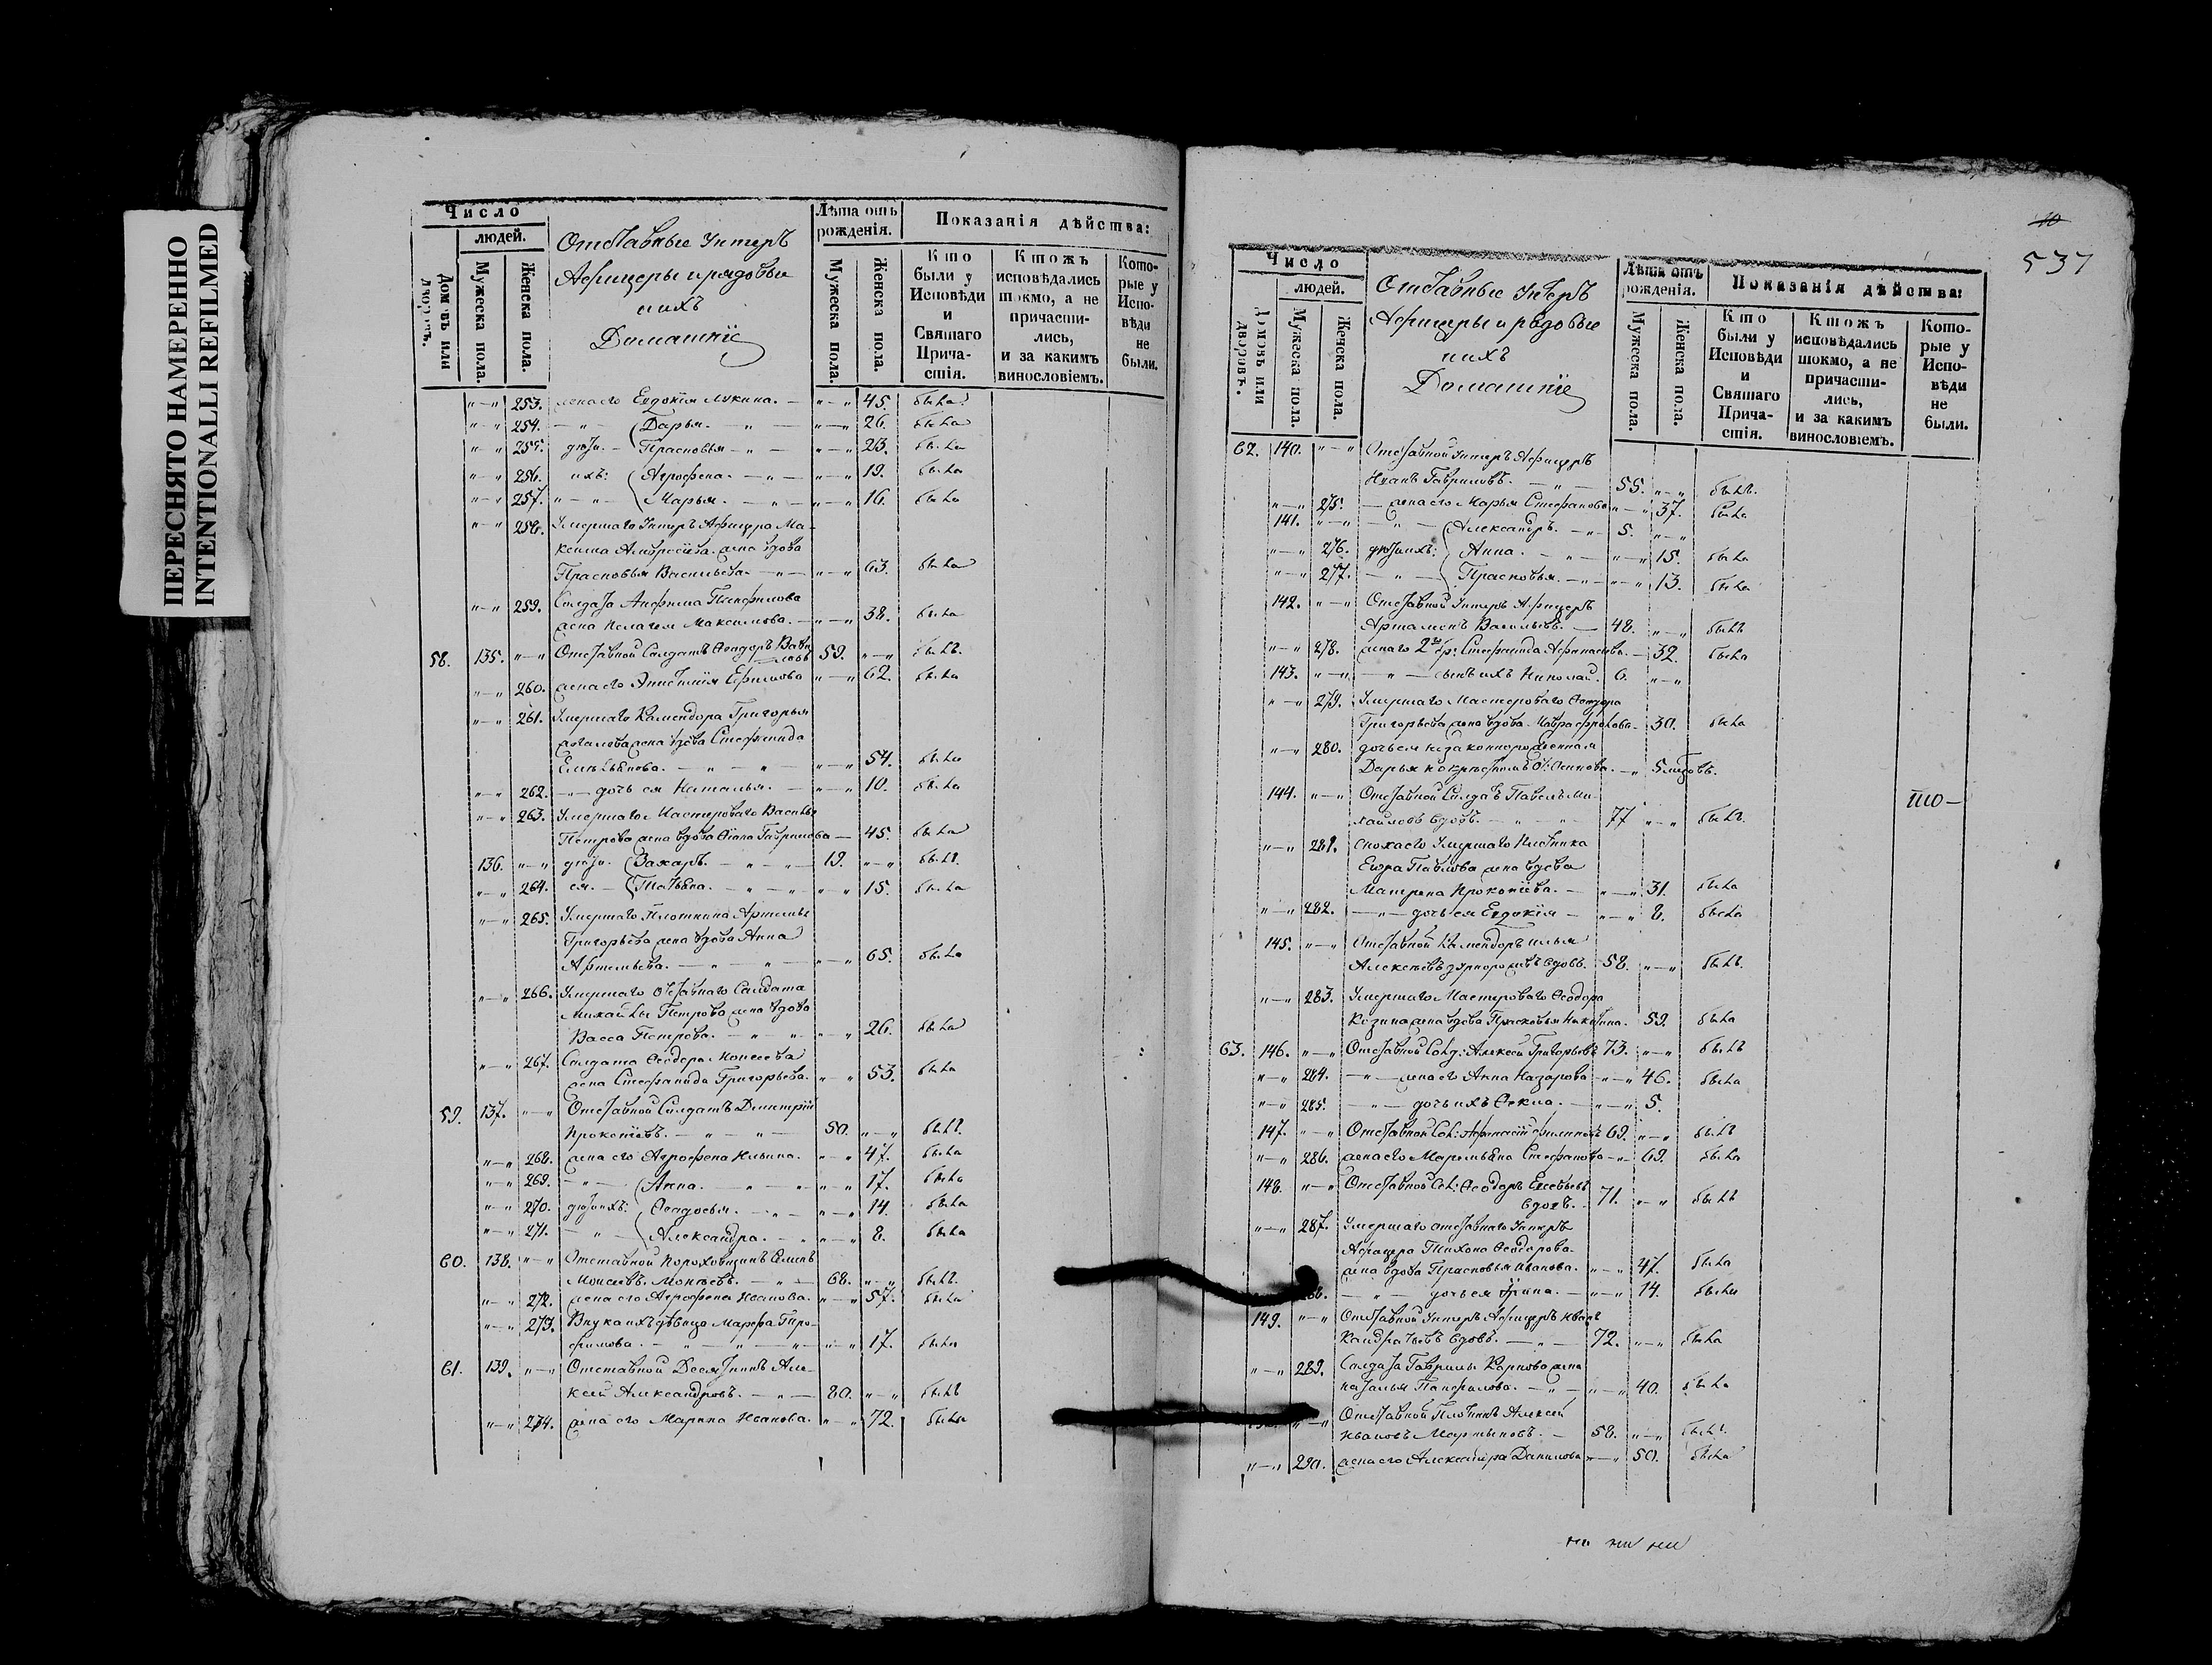 ПЕРЕСНЯТО НАМЕРЕННО
INTENTIONALLI REFILMED
Число
людей.
Домовъ или дворовъ.
Мужеска пола.
Женска пола.
Отставные Унтеръ
Афицеры и рядовые
и ихъ
Домашніе
Лѣта отъ рожденія.
Мужеска пола.
Женска пола.
Показанія дѣйства:
Кто были у Исповѣди и Святаго Причастія.
Ктожъ исповѣдались токмо, а не причастились, и за какимъ винословіемъ.
Которые у Исповѣди не были.
253. жена его Евдокія Лукина. 45. была
254. Дарья. 26. была
255. дѣти Прасковья 23. была
256. ихъ: Агрофена. 19. была
257. Марья. 16. была
258. Умершаго Унтеръ Афицера Ма-
ксима жена вдова
Прасковья Васильева. 63. была
259. Солдата Анфима Панфилова
жена Пелагея Максимова. 38. была
58. 135. Отставной Салдатъ Ѳеодоръ 59. былъ.
260. жена его Епистимія Ефимова 62. была
261. Умершаго Камендора Григорья
жена вдова Стефанида
Емельянова. 54. была
262. дочь ея Наталья. 10. была
263. Умершаго Мастероваго Василья
Петрова жена вдова Гаврилова 45. была
136. дѣти Захаръ. 19. былъ.
264. ея. Татьяна. 15. была
265. Умершаго Плотника Артемья
Григорьева жена вдова Анна
Артемьева. 65. была
266. Умершаго отставнаго Салдата
Михайлы Петрова жена вдова
Васса Петрова. 26. была
267. Салдата Ѳеодора Моисеева
жена Стефанида Григорьева. 53. была
59. 137. Отставной Салдатъ Димитрій
Прокопіевъ. 50. былъ.
268. жена его Агрофена Ильина. 47. была
269. Анна. 17. была
270. дѣти ихъ: Ѳеодосья. 14. была
271. Александра. 8. была
60. 138. Отставной Пороховщикъ
Моисеевъ. 68. былъ.
272. жена его Агрофена Иванова. 57. была
273. Внука ихъ девица Марфа Тро-
фимова. 17. была
61. 139. Отставной Десятникъ Але-
ксей Александровъ. 80. былъ
274. жена его Марина Иванова. 72. была
10
537
Число
людей.
Домовъ или дворовъ.
Мужеска пола.
Женска пола.
Отставные Унтеръ
Афицеры и рядовые
и ихъ
Домашніе
Лѣта отъ рожденія.
Мужеска пола.
Женска пола.
Показанія дѣйства:
Кто были у Исповѣди и Святаго Причастія.
Ктожъ исповѣдались токмо, а не причастились, и за какимъ винословіемъ.
Которые у Исповѣди не были.
62. 140. Отставной Унтеръ Афицеръ
Иванъ Гавриловъ. 55. былъ.
275. жена его Марья Стефанова 37. была
141. Александръ. 5.
276. дѣти ихъ: Анна. 15. была
277. Прасковья. 13. была
142. Отставной Унтеръ Афицеръ
Артамонъ Васильевъ. 48. былъ
278. жена его 2го бр: Стефанида Афанасьева. 32. была
143. сынъ ихъ Николай. 6.
279. Умершаго Мастероваго Ѳеодора
Григорьева жена вдова Мавра Фролова. 30. была
280. дочь ея незаконнорожденная
Дарья Осипова. 5 мѣсяцовъ.
144. Отставной Салдатъ Павелъ Ми-
хайловъ вдовъ. 77 былъ. тто
281. Сноха его Умершаго Плотника
Егора Павлова жена вдова
Матрена Прокопіева. 31. была
282. дочь ея Евдокія 8. была
145. Отставной Камендоръ Илья
Алексѣевъ вдовъ. 58. былъ.
283. Умершаго Мастероваго Ѳеодора
Козина жена вдова Прасковья Никитина. 59. была
63. 146. Отставной Салд: Алексей Григорьевъ 73. былъ
284. жена его Анна Назарова 46. была
285. дочь ихъ Ѳекла. 5.
147. Отставной Сал: Афанасій Филиповъ 69. былъ
286. жена его Маремьяна Стефанова 69. была
148. Отставной Сал: Ѳеодоръ Елесеевъ
вдовъ. 71. былъ
287. Умершаго отставнаго Унтеръ
Афицера Тихона Ѳеодорова.
жена вдова Прасковья Иванова. 47. была
288. дочь ея Ирина. 14. была
149. Отставной Унтеръ Афицеръ Иванъ
Кандратьевъ вдовъ. 72. была
289. Салдата Гаврилы Карпова жена
Наталья Панфилова. 40. была
Отставной Плотникъ Алексей
Ивановъ Мартыновъ. 58. былъ.
290. жена его Александра Данилова 50. была